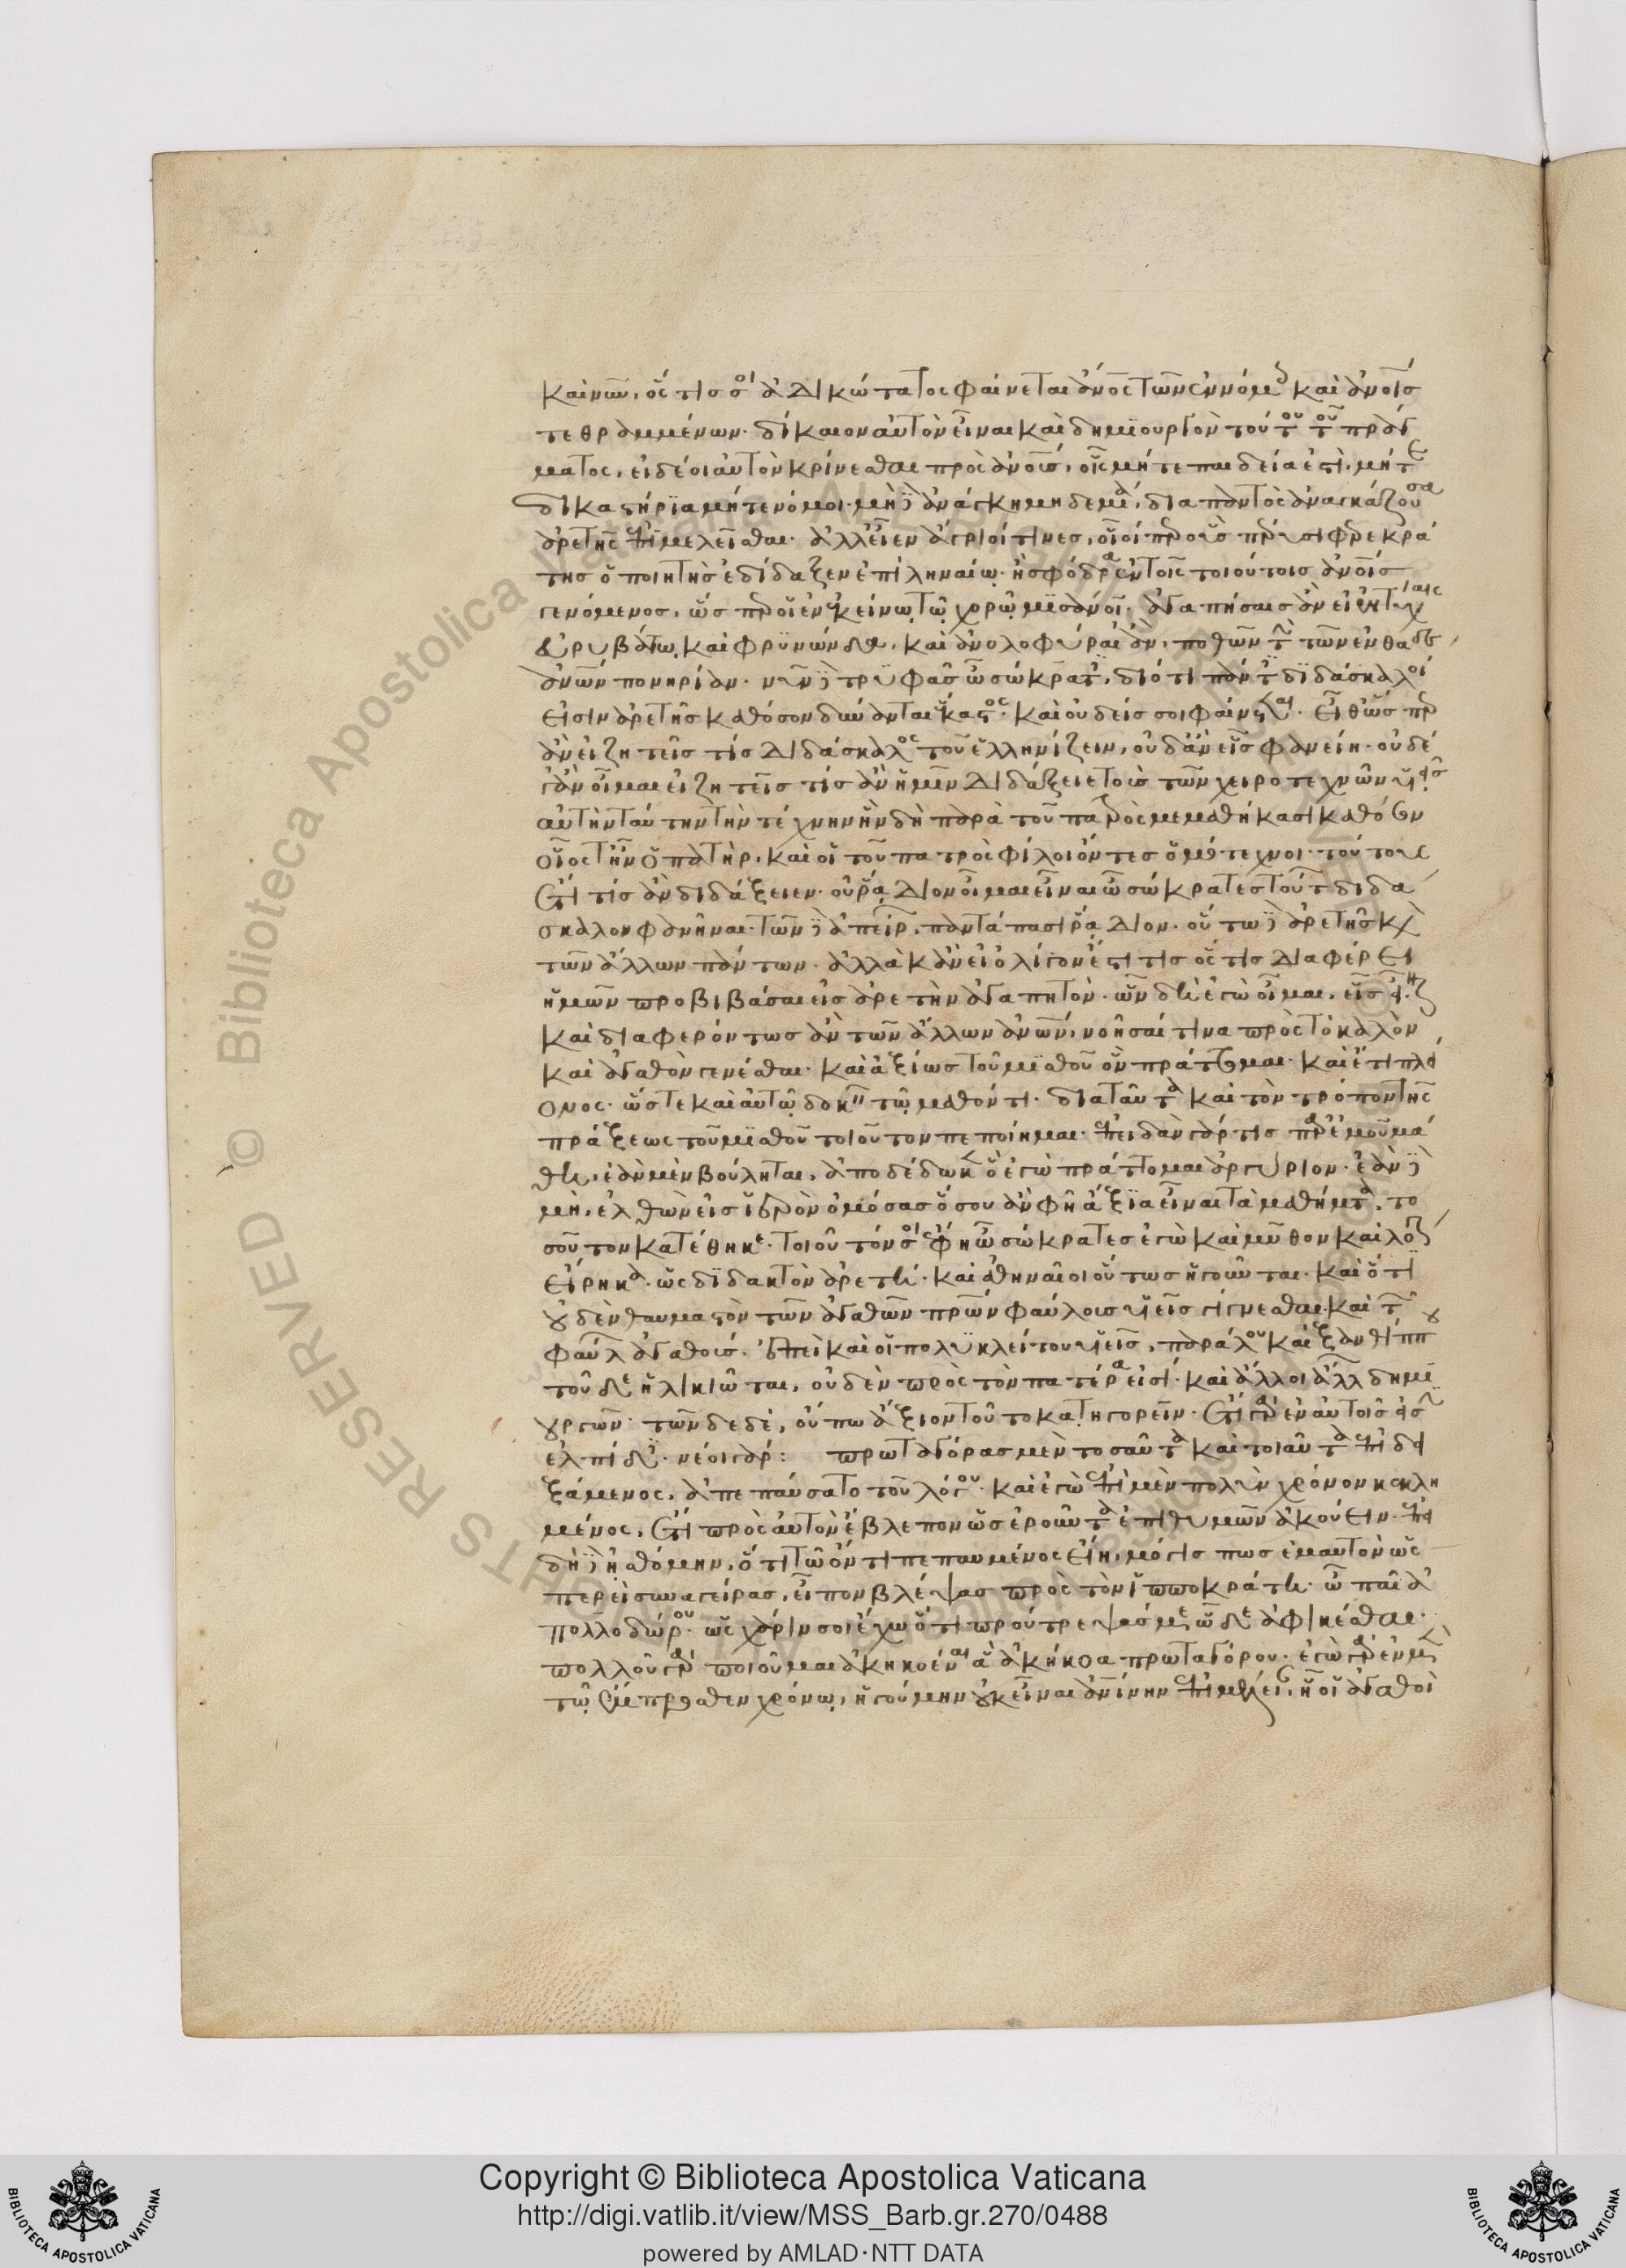 καὶ νῦν, ὅστις σοι ἀδικώτατος φαίνεται ἄνος τῶν ἐν νόμοις καὶ ἀνοις
τεθραμμένων· δίκαιον αὐτὸν εἶναι καὶ δημιουργὸν τούτου τοῦ πράγ
ματος, εἰ δέοι αὐτὸν κρίνεσθαι πρὸς ἀνους, οἷς μήτε παιδεία ἐστὶ, μήτε
δικαστήρια μήτε νόμοι· μὴ δὲ ἀνάγκη μηδεμία, διὰ παντὸς ἀναγκάζουσα
ἀρετῆς ἐπιμελεῖσθαι· ἀλλ' εἶεν ἄγριοί τινες, οἷοί περ οὓς πέρυσι φερεκρά
της ὁ ποιητὴς ἐδίδαξεν ἐπὶ ληναίω· ἦ σφόδρα ἐν τοῖς τοιούτοις ἀνοις
γενόμενος, ὥσπερ οἱ ἐν ἐκείνω τῶ χορῶ μισάνοι· ἀγαπήσαις ἂν εἰ ἐντύχαις
εὐρυβάτω καὶ φρυνώνδα, καὶ ἀνολοφύραι' ἂν, ποθῶν τὴν τῶν ἐνθάδε
ἀνων πονηρίαν· νῦν δὲ τρυφᾶς ὦ σώκρατες, διότι πάντες διδάσκαλοί
εἰσιν ἀρετῆς καθόσον δύνανται ἕκαστος· καὶ οὐδείς σοι φαίνεται· εἶθ' ὥσπερ
ἂν εἰ ζητεῖς τίς διδάσκαλος τοῦ ἑλληνίζειν, οὐδ' ἂν εἷς φανείη· οὐδέ
γ' ἂν οἶμαι εἰ ζητεῖς τίς ἂν ἡμῖν διδάξειε τοὺς τῶν χειροτεχνῶν υἱεῖς
αὐτὴν ταύτην τὴν τέχνην ἣν δὴ παρὰ τοῦ πατρὸς μεμαθήκασι καθόσον
οἷός τ' ἦν ὁ πατὴρ, καὶ οἱ τοῦ πατρὸς φίλοι ὄντες ὁμότεχνοι· τούτους
ἔτι τίς ἂν διδάξειεν· οὐ ῥάδιον οἶμαι εἶναι ὦ σώκρατες τούτων διδά
σκαλον φανῆναι· τῶν δὲ ἀπείρων, παντάπασι ῥάδιον· οὕτω δὲ ἀρετῆς καὶ
τῶν ἄλλων πάντων· ἀλλὰ κἂν εἰ ὀλίγον ἔστι τις ὅστις διαφέρει
ἡμῶν προβιβάσαι εἰς ἀρετὴν ἀγαπητόν· ὧν δὴ ἐγὼ οἶμαι, εἷς εἶναι
καὶ διαφερόντως ἂν τῶν ἄλλων ἀνων, νοῆσαί τινα πρὸς τὸ καλὸν
καὶ ἀγαθὸν γενέσθαι· καὶ ἀξίως τοῦ μισθοῦ ὃν πράττομαι· καὶ ἔτι πλεί
ονος· ὥστε καὶ αὐτῶ δοκεῖν τῶ μαθόντι· διὰ ταῦτα καὶ τὸν τρόπον τῆς
πράξεως τοῦ μισθοῦ τοιοῦτον πεποίημαι· ἐπειδὰν γάρ τις παρ' ἐμοῦ μά
θη, ἐὰν μὲν βούληται, ἀποδέδωκεν ὃ ἐγὼ πράττομαι ἀργύριον· ἐὰν δὲ
μὴ, ἐλθὼν εἰς ἱερὸν ὀμόσας ὅσου ἂν φῆ ἄξια εἶναι τὰ μαθήματα, το
σοῦτον κατέθηκε· τοιοῦτόν σοι ἔφη ὦ σώκρατες ἐγὼ καὶ μῦθον καὶ λόγον
εἴρηκα· ὡς διδακτὸν ἀρετή· καὶ ἀθηναῖοι οὕτως ἡγοῦνται· καὶ ὅτι
οὐδὲν θαυμαστὸν τῶν ἀγαθῶν πρων φαύλους υἱεῖς γίγνεσθαι· καὶ τῶν
φαύλων ἀγαθούς· ἐπεὶ καὶ οἱ πολυκλείτου υἱεῖς, παράλου καὶ ξανθίππου
τοῦδε ἡλικιῶται, οὐδὲν πρὸς τὸν πατέρα εἰσί· καὶ ἄλλοι ἄλλων δημι
ουργῶν· τῶνδε δὲ, οὔπω ἄξιον τοῦτο κατηγορεῖν· ἔτι γὰρ ἐν αὐτοῖς εἰσὶν
ἐλπίδες· νέοι γάρ: πρωταγόρας μὲν τοσαῦτα καὶ τοιαῦτα ἐπιδει
ξάμενος, ἀπεπαύσατο τοῦ λόγου· καὶ ἐγὼ ἐπὶ μὲν πολὺν χρόνον κεκλη
μένος, ἔτι πρὸς αὐτὸν ἔβλεπον ὡς ἐροῦντά ἐπιθυμῶν ἀκούειν· ἐπει
δὴ δὲ ἠσθόμην, ὅτι τῶ ὄντι πεπαυμένος εἴη, μόγις πως ἐμαυτὸν ὡς
περεὶ συναγείρας, εἶπον βλέψας πρὸς τὸν ἱπποκράτη· ὦ παῖ ἀ
πολλοδώρου· ὡς χάριν σοι ἔχω ὅτι προύτρεψάς με ὧδε ἀφικέσθαι·
πολλοῦ γὰρ ποιοῦμαι ἀκηκοέναι ἃ ἀκήκοα πρωταγόρου· ἐγὼ γὰρ ἐν μὲν
τῶ ἔμπροσθεν χρόνω, ἡγούμην οὐκ εἶναι ἀνίνην ἐπιμέλειαν, ἧ οἱ ἀγαθοὶ
Copyright © Biblioteca Apostolica Vaticana
http://digi.vatlib.it/view/MSS_Barb.gr.270/0488
powered by AMLAD·NTT DATA